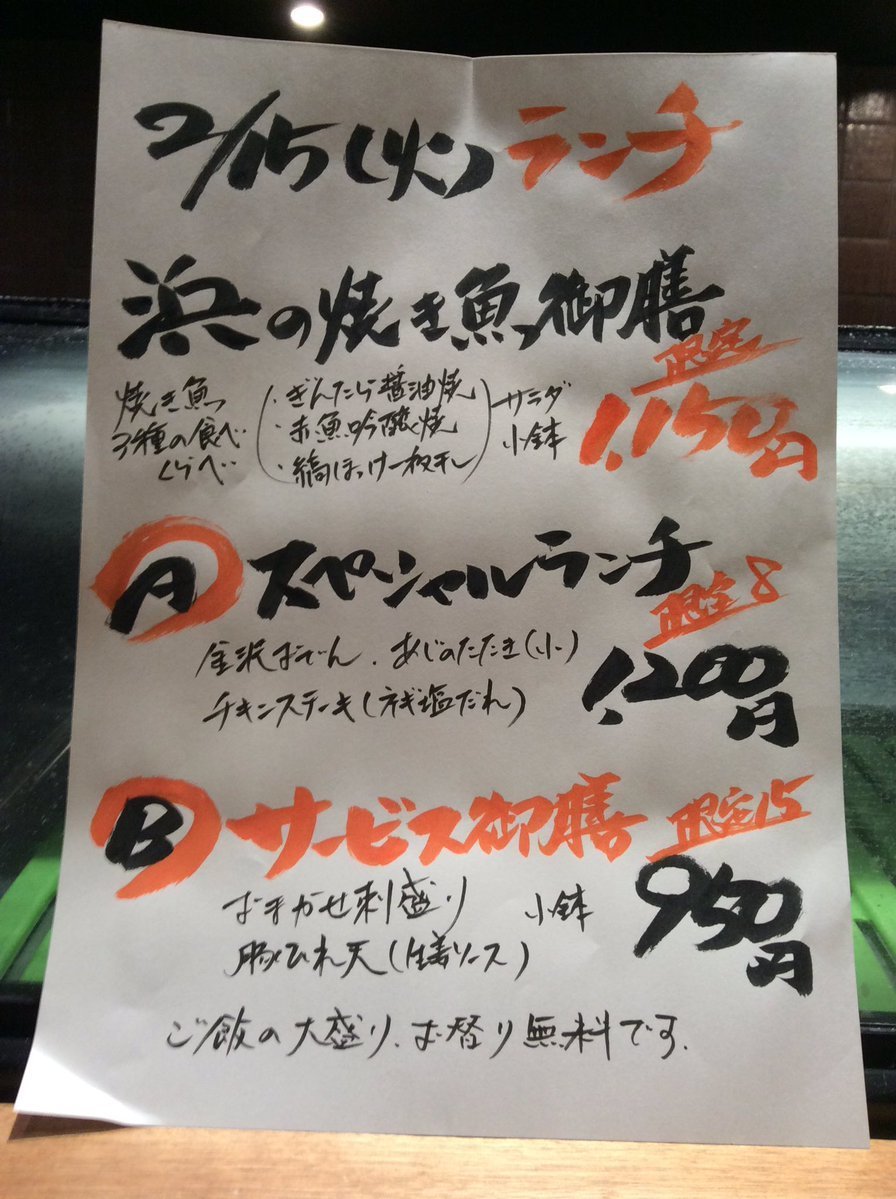 2/15(火)ランチ
浜の焼き魚御膳
限定
1,150円
焼き魚
3種の食べ
くらべ
・ぎんたら醤油焼
・赤魚吟醸焼
・縞ほっけ一枚干し
サラダ
小鉢
A スペシャルランチ
限定8
金沢おでん、あじのたたき(小)
チキンステーキ(ネギ塩だれ)
1,200円
B サービス御膳 限定15
おまかせ刺盛り 小鉢
豚ひれ天(生姜ソース)
950円
ご飯の大盛り、お替り無料です。